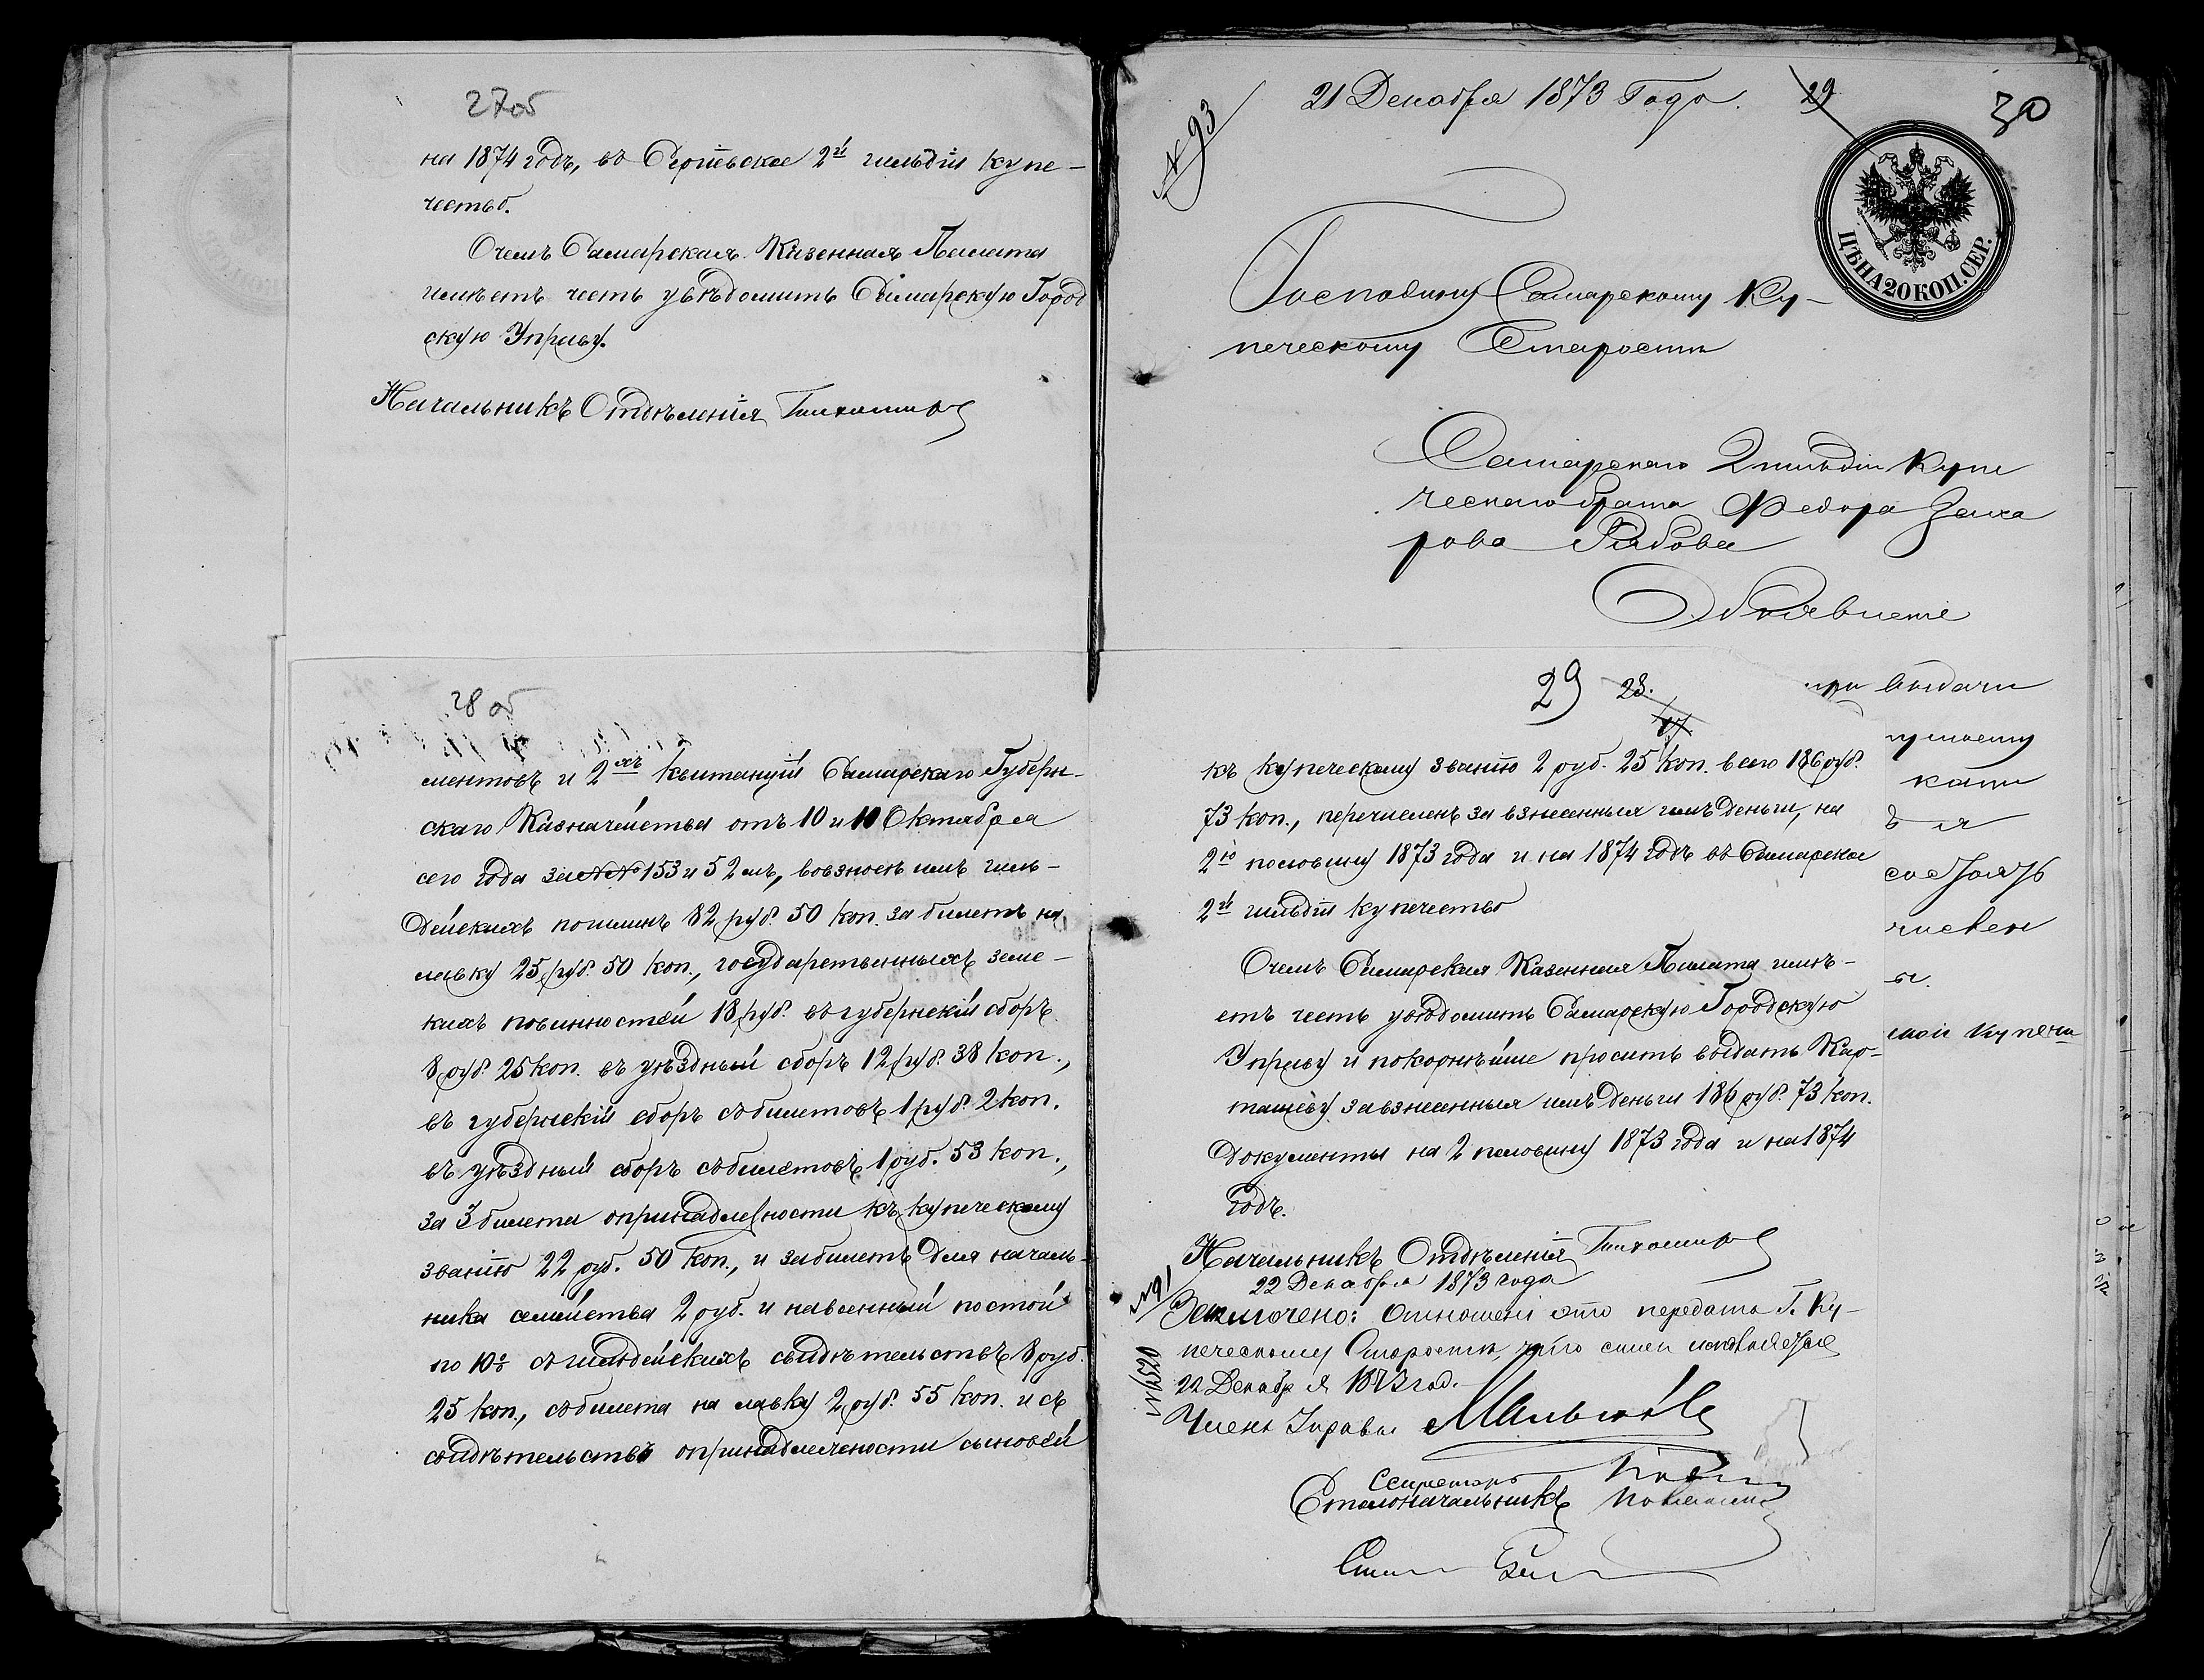 27об
на 1874 годъ, въ Сергіевское 2й гильдіи купе-
чество.
Очемъ Самарская Казенная Палата
имѣетъ честь увѣдомить Самарскую Город
скую Управу.
Начальникъ Отдѣленія Тихомировъ
28 об
ментовъ и 2хъ квитанцій Самарскаго Губерн-
скаго Казначейства отъ 10 и 10 Октября
сего года за №№ 153 и 52мъ, вовзносѣ имъ гиль-
дейскихъ пошлинъ 82 руб. 50 коп. за билетъ на
лавку 25 руб. 50 коп., государственныхъ земс-
кихъ повинностей 18 руб. въ губернскій сборъ
8 руб. 25 коп. въ уѣздный сборъ 12 руб. 38 коп.,
въ губернскій сборъ съ билетовъ 1 руб. 2 коп.
въ уѣздный сборъ съ билетовъ 1 руб. 53 коп.,
за 3 билета опринадлежности къ купеческому
званію 22 руб. 50 коп., и за билетъ для началь-
ника семейства 2 руб. и на военный постой
по 10% съ гильдейскихъ свидѣтельствъ 8 руб.
25 коп., съ билета на лавку 2 руб. 55 коп. и съ
свидѣтельствъ опринадлежности сыновей
№ 93
21 Декабря 1873 Года.
29
30
ЦѢНА 20 КОП. СЕР.
Господину Самарскому Ку-
печескому Старостѣ
Самарскаго 2 гильдіи Купе
ческаго брата Федора Заха
рова
Объявленіе
29 28.
17
къ купеческому званію 2 руб. 25 коп. всего 186 руб.
73 коп., перечисленъ за взнесенныя имъ деньги, на
2ю половину 1873 года и на 1874 годъ въ Самарское
2й гильдіи купечество
Очемъ Самарская Казенная Палата имѣ-
етъ честь увѣдомить Самарскую Городскую
Управу и покорнѣйше проситъ выдать Кар-
ташеву за взнесенныя имъ деньги 186 руб. 73 коп.
документы на 2 половину 1873 года и на 1874
годъ.
Начальникъ Отдѣленія Тихомировъ
№ 91
22 Декабря 1873 года
Заключено: Отношеніе это передать Г. Ку-
печескому Старостѣ, что симъ исполняется
22 Декабря 1873 год.
№ 6520
Членъ Управы
Секретарь
Столоначальникъ
при выдачи
ы.
мои купече